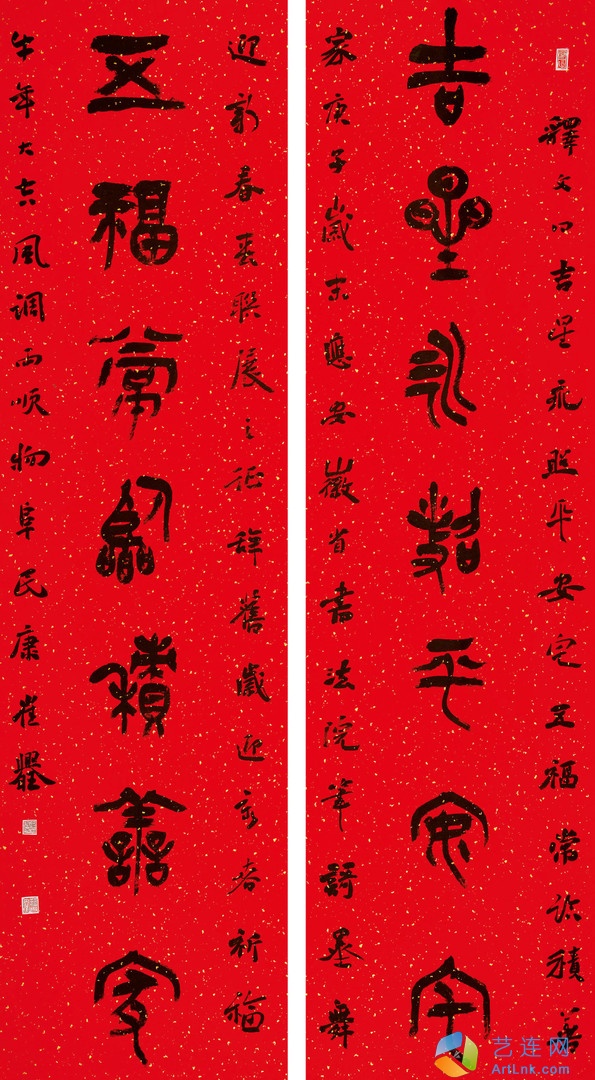 吉星永照平安宅
釋文曰吉星永照平安宅五福常臨積善
家庚子歲末應安徽省書法院筆謌墨舞
五福常臨積善家
迎新春春聯展之征辭舊歲迎新春祈福
牛年大吉風調雨順物阜民康崔
艺连网
ArtLnk.com